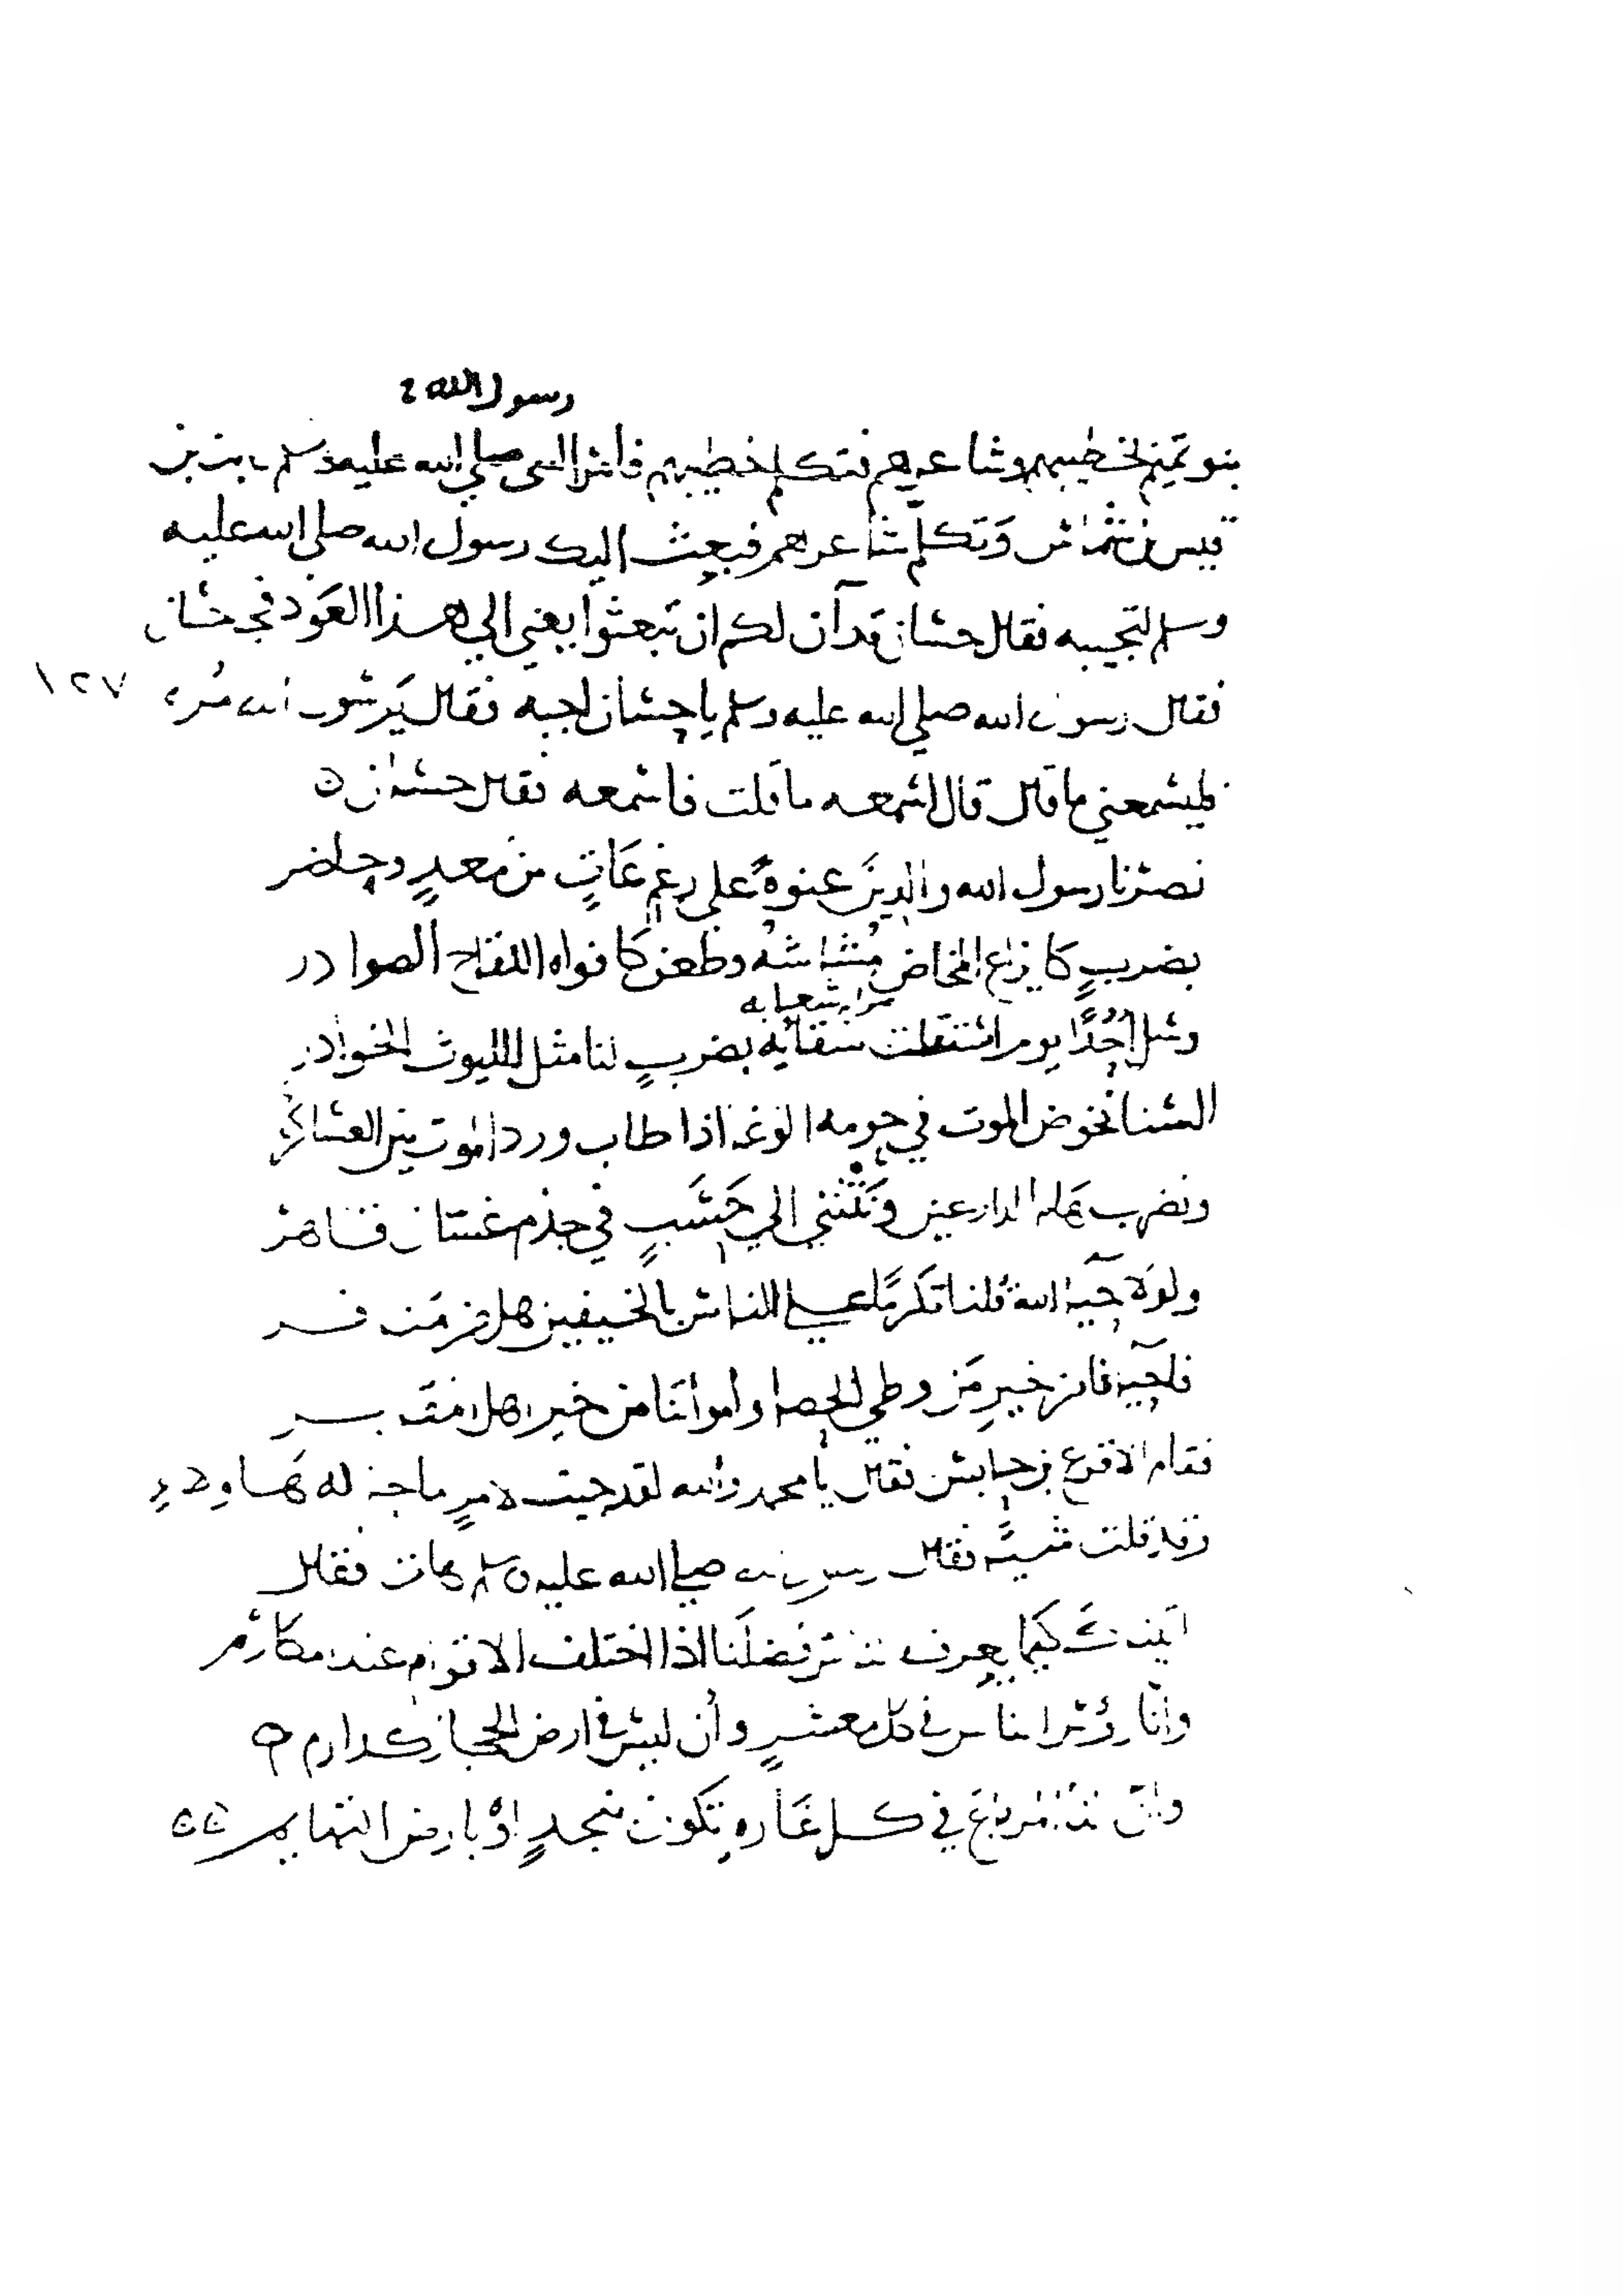 رسول الله
بنو تميم لخطيبهم وشاعرهم فتكلم خطيبهم فامر النبي صلى الله عليه وسلم ثابت بن
قيس بن شماس وتكلم شاعرهم فبعث اليك رسول الله صلى الله عليه
وسلم لتجيبه فقال حسان قد آن لكم ان تبعثوا يعني الي هذا العود فجا حسان
فقال رسول الله صلي الله عليه وسلم يا حسان اجبه فقال يرسول الله مره
١٢٧
فليسمعني ما قال قال اسمعه ما قلت فاسمعه فقال حسان
نصرنا رسول الله والدين عنوةً علي رغم عاتٍ من معدٍ وحاضر
بضربٍ كايزاع المخاض مشاشه وطعن كافواه اللقاح الصوادر
مرا شعابه
وسل احدًا يوم استقلت بضربٍ لنا مثل الليوث الخوادر
السنا نخوض الموت في حومه الوغا اذا طاب ورد الموت بين العساكر
ونضرب هام الدارعين وننتمي الي حسبٍ في جذم غسان قاهر
ولولا حيا الله قلنا تكرمًا علي الناس بالخيفين هل من منافر
فاحياونا من خير من وطي الحصا وامواتنا من خير اهل المقابر
فقام الاقرع بن حابس فقال يا محمد والله لقد جيت لامرٍ ما جا له هاولاءِ
وقد قلت شيا فقال رسول الله صلي الله عليه وسلم هات فقال
اتيناك كيما يعرف الناس فضلنا اذا اختلف الاقوام عند المكارم
وانا رؤس الناس في كل معشرٍ وان ليس في ارض الحجاز كدارم
وان لنا المرباع في كل غارهٍ تكون بنجدٍ او بارض التهايم